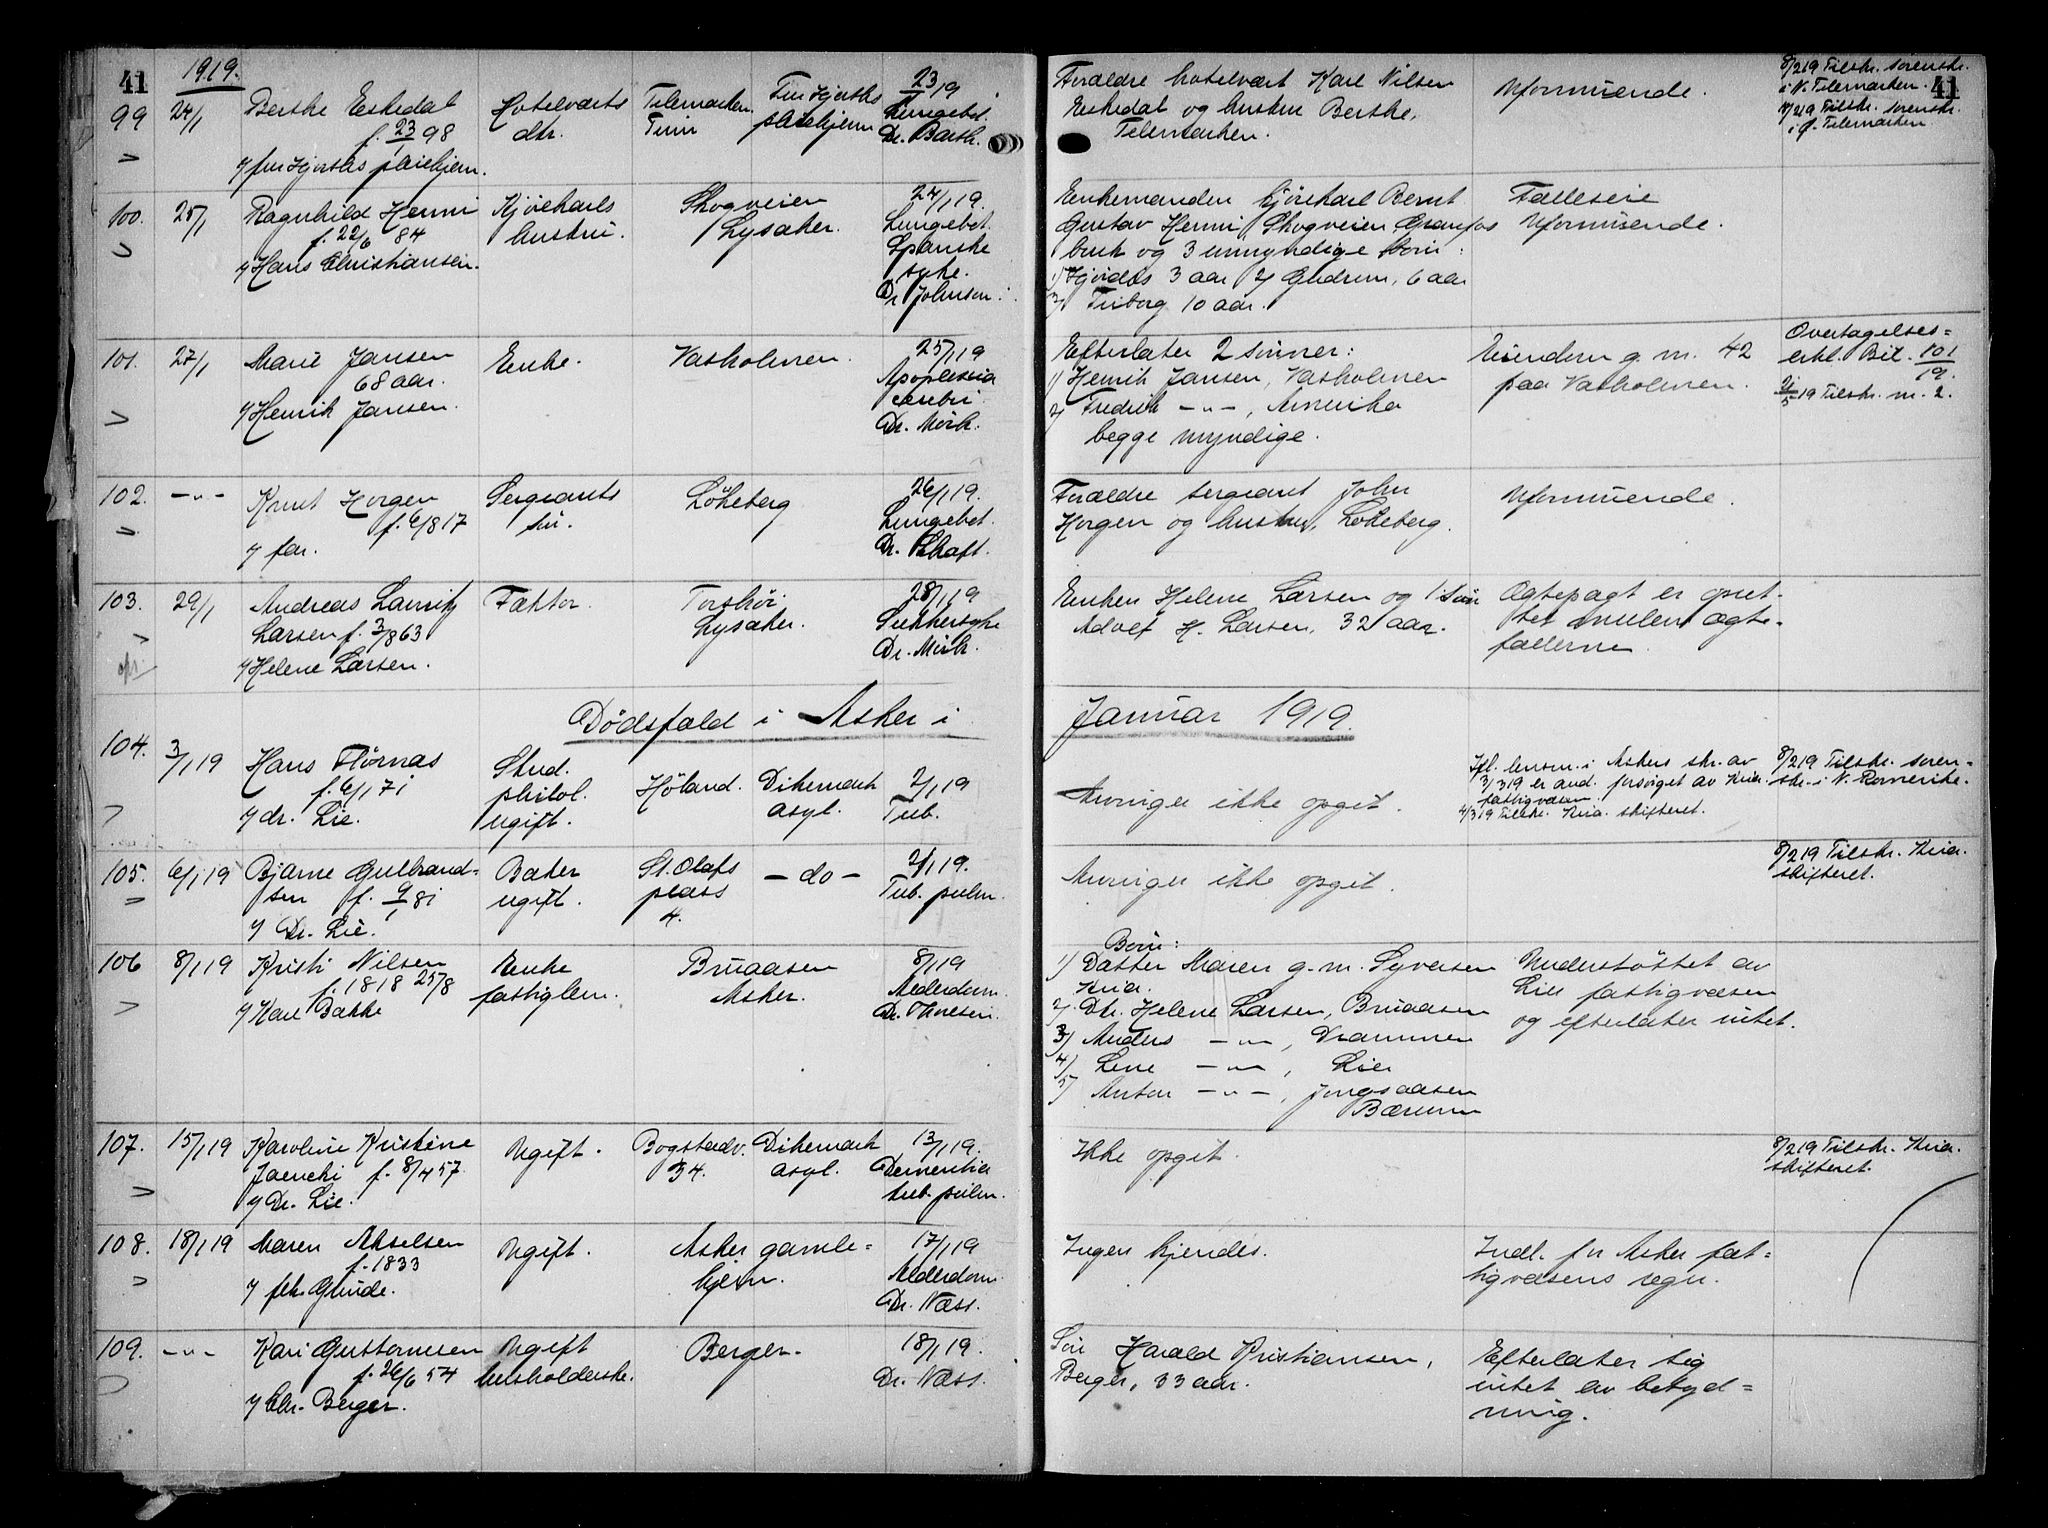 41
1919.
99 24/1 Berthe Eskedal Hotelværts Telemarken Fru Hjorths 23/1 19
f. 23/ 98 dtr. Tinn pleiehjem Lungebet.
Dr. Barth.
v/ fru Hjorths pleiehjem.
Forældre hotelvært Karl Nilsen Uformuende. 8/2 19 Tilskr. sorenskr.
Eskedal og hustru Berthe, i N. Telemarken.
Telemarken. Tilskr. sorenskr.
i Ø. Telemarken
41
100. 25/1 Ragnhild Henni Kjørekarls Skogveien 24/1 19.
f. 22/6 84 hustru. Lysaker. Lungebet.
v/ Hans Christiansen. Spanske
syke.
Dr Johnsen.
Enkemanden kjørekarl Bernt Fælleseie
Gustav Henni Skogveien, Granfos Uformuende.
bruk og 3 umyndige born:
1) Hjørdis 3 aar 2) Gudrun, 6 aar
3) 10 aar.
101. 27/1 Marie Jansen Enke. Vasholmen. 25/1 19
68 aar. Apoplexia
v/ Henrik Jansen. cerebri.
Dr. Mørk.
Efterlater 2 sønner: Eiendom g. nr. 42 Overtagelses-
1) Henrik Jansen, Vasholmen paa Vasholmen. erkl. Bil. 101/19.
2) Fredrik -"-, Amerika 19 Tilskr. nr. 2.
begge myndige.
102. -"- Knut Horgen Sergeants Løkeberg 26/1 19.
f. 6/8 17 søn. Lungebet.
v/ far. Dr. Schaft.
Forældre sergeant John Uformuende.
Horgen og hustru, Løkeberg.
103. 29/1 Andreas Lauritz Faktor. Torshøi 28/1 19
Larsen f. 3/8 63 Lysaker. Sukkersyke
v/ Helene Larsen. Dr. Mørk.
Enken Helene Larsen og 1 søn Ægtepagt er opret-
Adolf H. Larsen, 32 aar. tet mellem ægte-
fællerne.
Dødsfald i Asker i Januar 1919.
104. 3/1 19 Hans Flørnæs Stud. Høland. Dikemark 2/1 19
f. 6/1 71 philol. asyl. Tub.
v/ dr. Lie. ugift.
Arvinger ikke opgit. Ifl. lensm. i Askers skr. av 8/2 19 Tilskr. soren-
3/3 19 er avd. forsørget av Kria. skr. i N. Romerike.
fattigvæsen
4/3 19 Tilskr. Kria. skifteret.
105. 6/1 19 Bjarne Gulbrand- Baker St. Olafs -do- 2/1 19.
sen f. 9/1 81 ugift. plass Tub. pulm.
v/ Dr. Lie. 4.
Arvinger ikke opgit. 8/2 19 Tilskr. Kria.
skifteret.
106 8/1 19 Kristi Nilsen Enke Bruaasen 8/1 19
f. 1818 25/8 fattiglem. Asker. Alderdom.
v/ Karl Bakke Dr. Thoresen.
Born:
1) Datter Maren g.m. Syversen Understøttet av
Kria. Lier fattigvæsen
2) Dtr. Helene Larsen, Bruaasen og efterlater intet.
3) Anders -"-, Drammen
4) Lene -"-, Lier
5) Anton -"-, Jongsaasen
Bærum
107. 15/1 19 Karoline Kristine Ugift. Bogstadv. Dikemark 13/1 19.
Jaencki f. 8/4 57. 34. asyl. Dementia
v/ Dr. Lie. tub. pulm.
Ikke opgit. 8/2 19 Tilskr. Kria.
skifteret.
108. 18/1 19 Maren Akselsen Ugift. Asker gamle- 17/1 19
f. 1833 hjem. Alderdom
v/ frk. Glinde. Dr. Næss.
Ingen kjendes. Indl. for Asker fat-
tigvæsens regn.
109. -"- Kari Guttormsen Ugift Berger. 18/1 19.
f. 26/6 54 husholderske. Dr. Næss.
v/ Chr. Berger.
Søn Harald Kristiansen, Efterlater sig
Berger, 33 aar. intet av betyd-
ning.